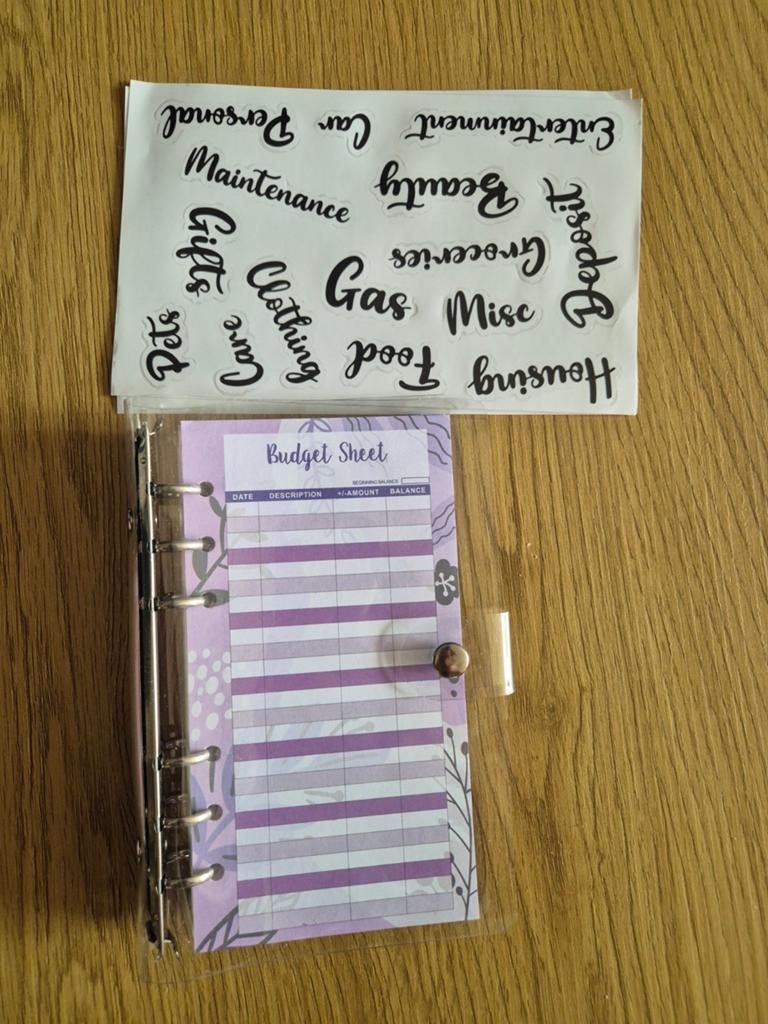 Personal
Car
Entertainment
Maintenance
Beauty
Deposit
Gifts
Groceries
Clothing
Gas
Misc
Pets
Care
Food
Housing
Budget Sheet
BEGINNING BALANCE
DATE DESCRIPTION +/-AMOUNT BALANCE